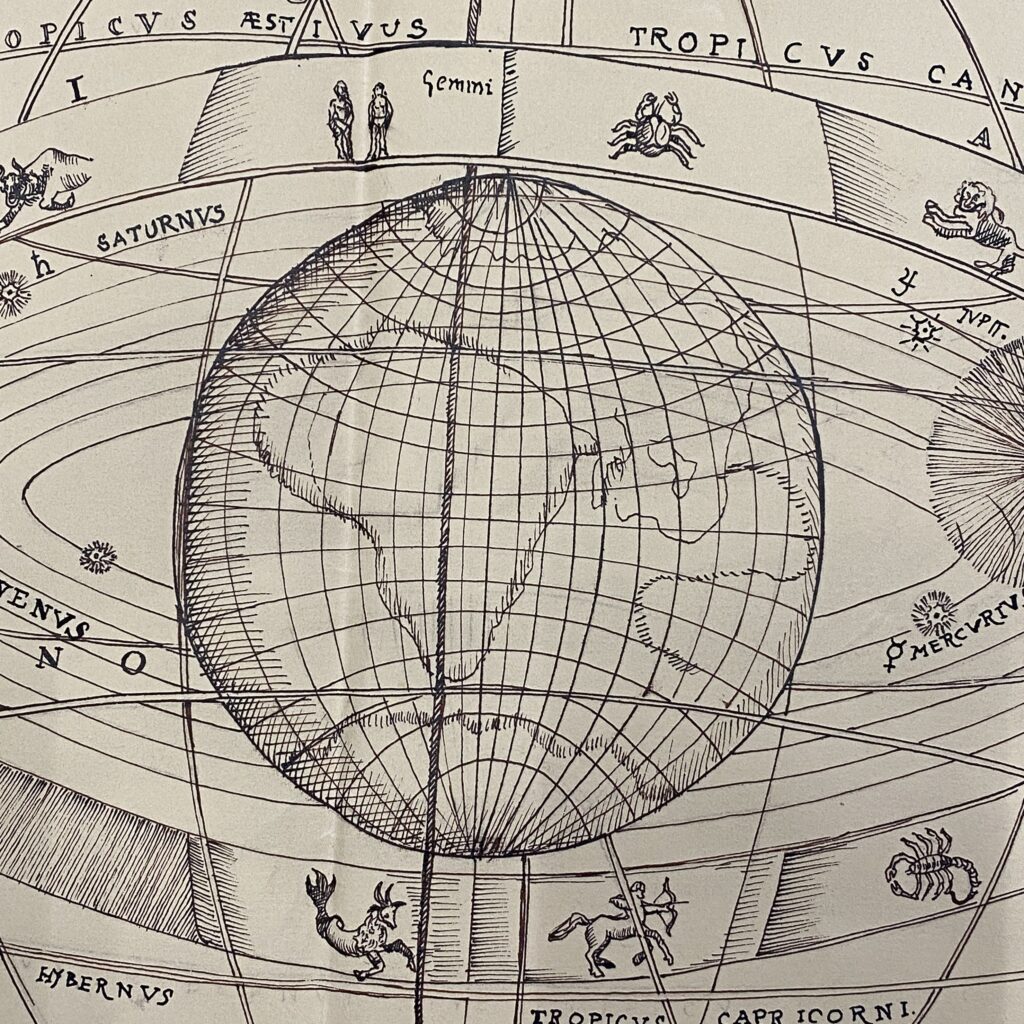 OPICVS ÆSTIVUS TROPICVS CAN
I
Gemini
A
SATURNVS
♄
♃
IVPIT.
VENVS
NO
☿ MERCVRIVS
HYBERNVS
TROPICVS CAPRICORNI.